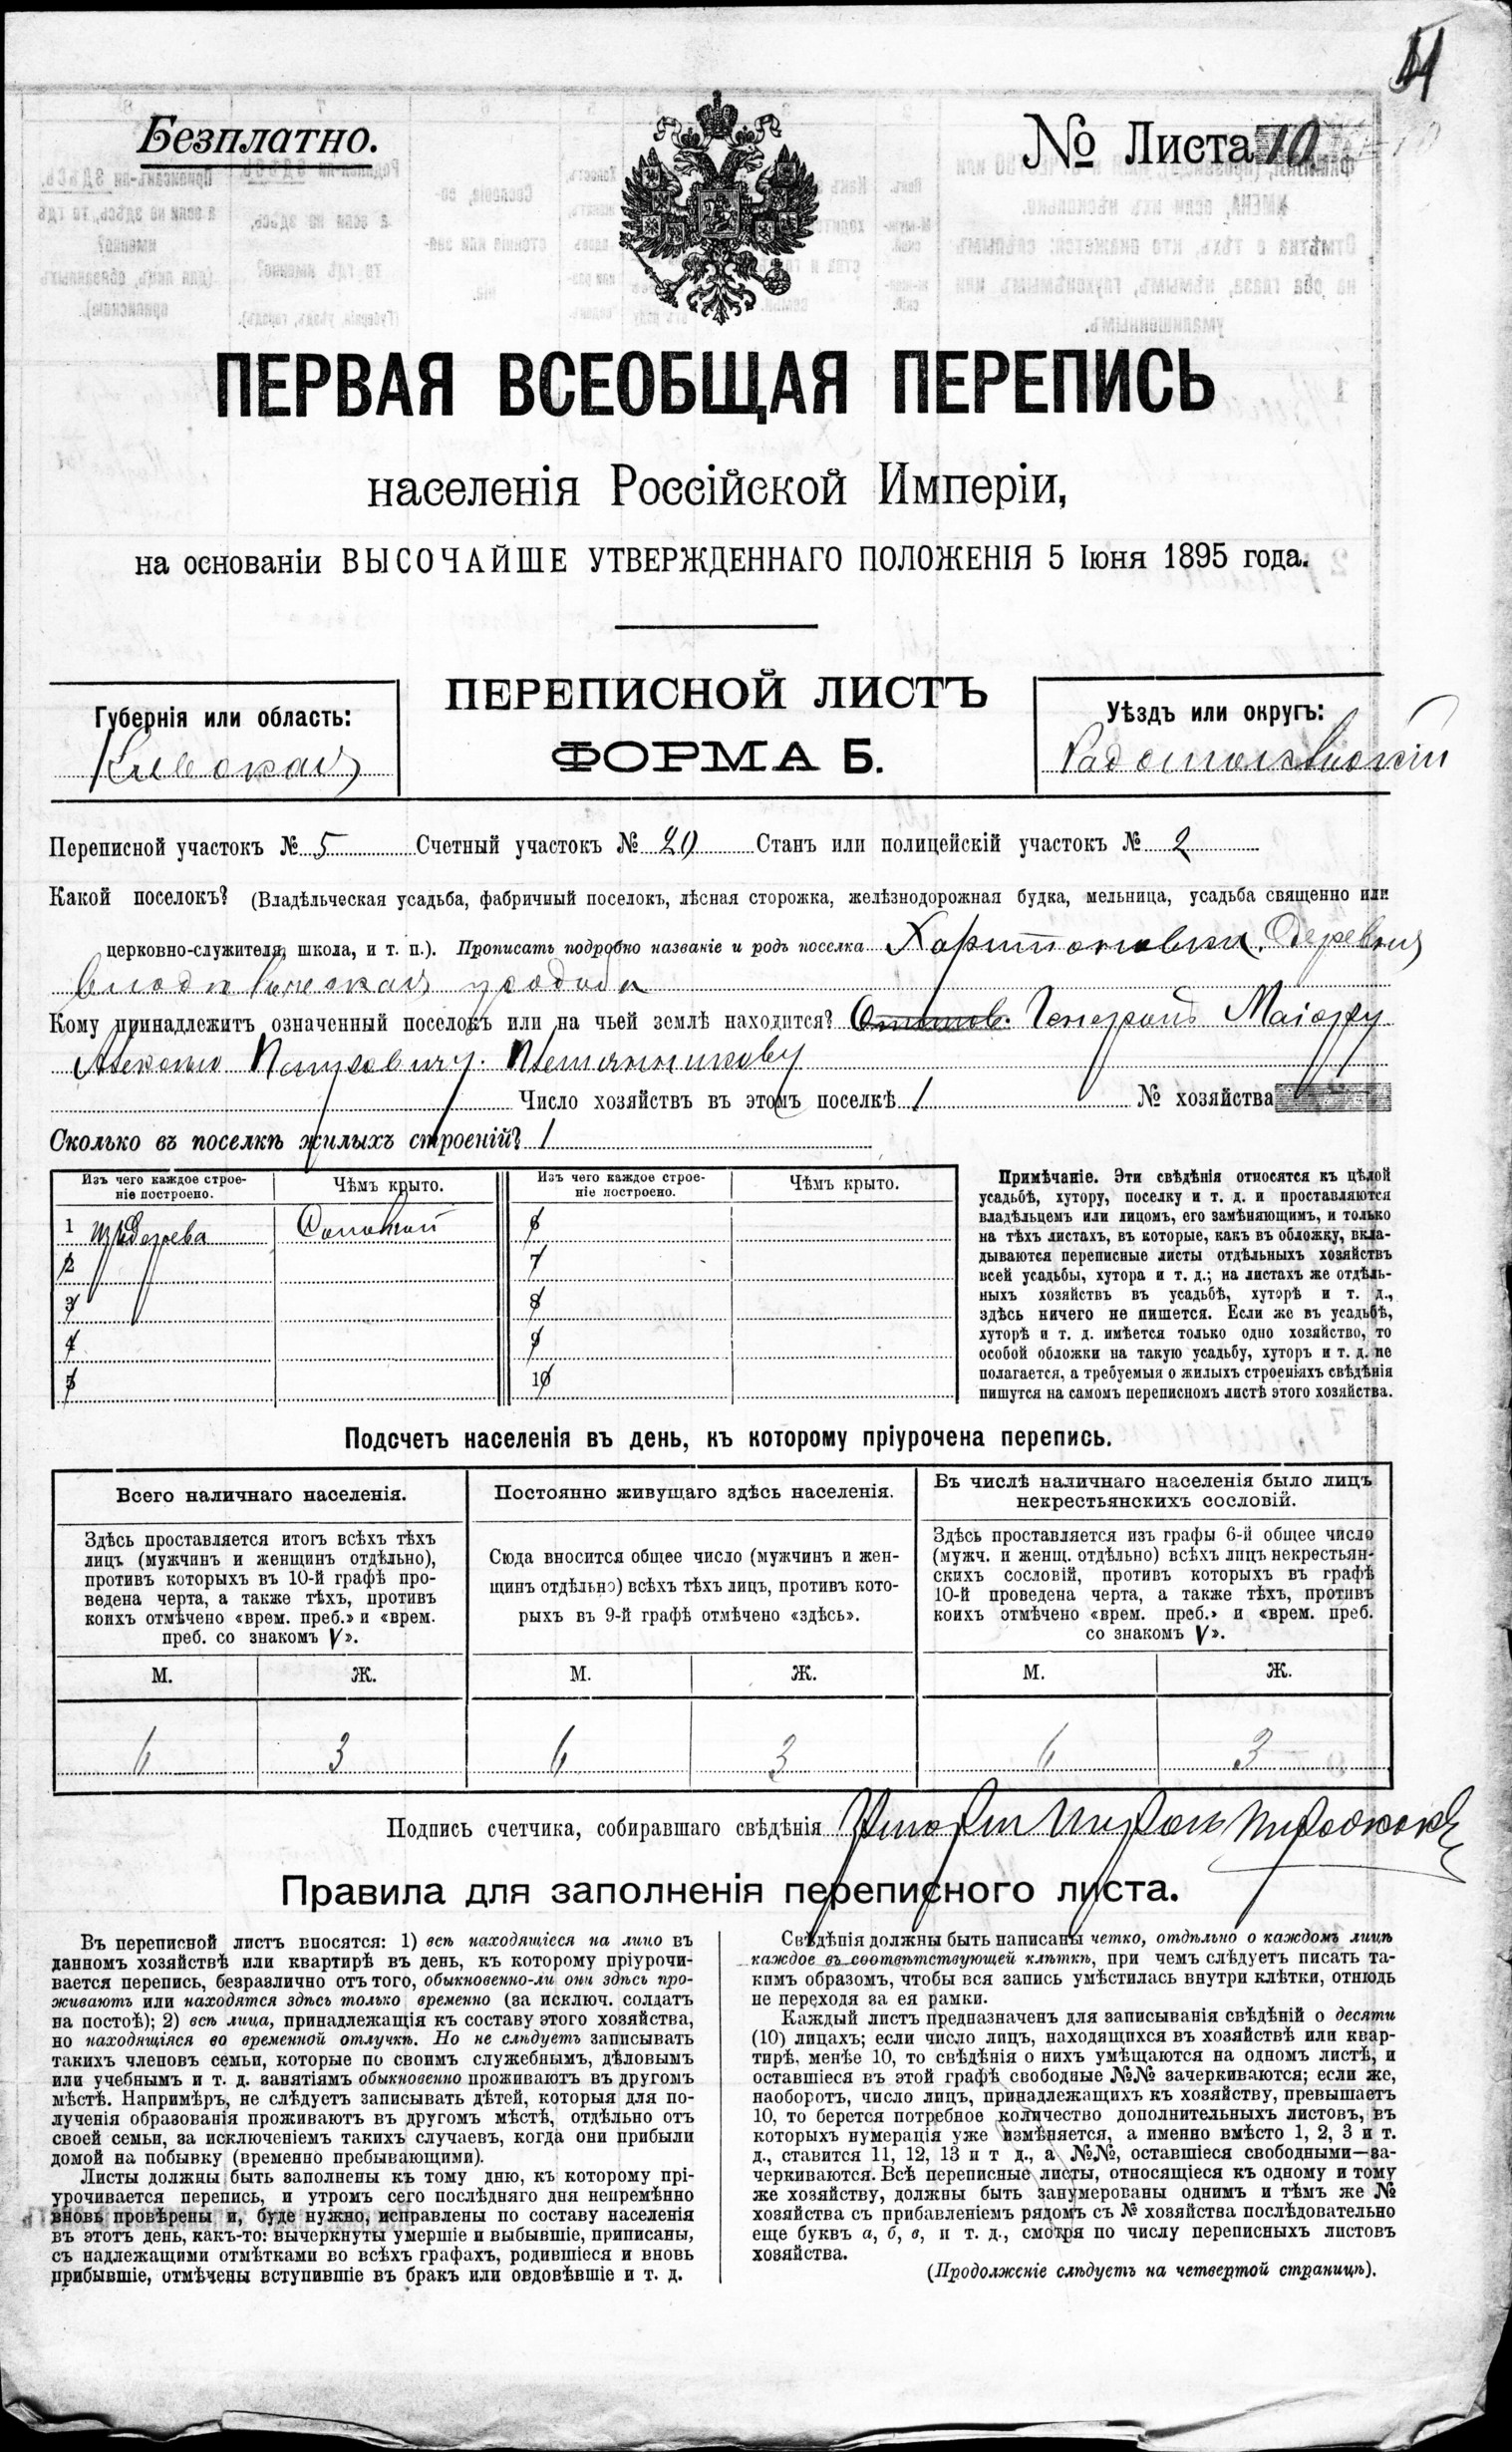 51
Безплатно.
№ Листа 10.
ПЕРВАЯ ВСЕОБЩАЯ ПЕРЕПИСЬ
населенія Россійской Имперіи,
на основаніи ВЫСОЧАЙШЕ УТВЕРЖДЕННАГО ПОЛОЖЕНІЯ 5 Іюня 1895 года.
Губернія или область:
Кіевская
ПЕРЕПИСНОЙ ЛИСТЪ
ФОРМА Б.
Уѣздъ или округъ:
Радомысльскій
Переписной участокъ № 5 Счетный участокъ № 20 Станъ или полицейскій участокъ № 2
Какой поселокъ? (Владѣльческая усадьба, фабричный поселокъ, лѣсная сторожка, желѣзнодорожная будка, мельница, усадьба священно или
церковно-служителя, школа, и т. п.). Прописать подробно названіе и родъ поселка Харитоновка Деревня
усадьба
Кому принадлежитъ означенный поселокъ или на чьей землѣ находится? Генералъ Маіору
Число хозяйствъ въ этомъ поселкѣ 1 № хозяйства
Сколько въ поселкѣ жилыхъ строеній? 1
Изъ чего каждое строе-
ніе построено.
Чѣмъ крыто.
Изъ чего каждое строе-
ніе построено.
Чѣмъ крыто.
1 изъ дерева Соломой
2
3
4
5
6
7
8
9
10
Примѣчаніе. Эти свѣдѣнія относятся къ цѣлой
усадьбѣ, хутору, поселку и т. д. и проставляются
владѣльцемъ или лицомъ, его замѣняющимъ, и только
на тѣхъ листахъ, въ которые, какъ въ обложку, вкла-
дываются переписные листы отдѣльныхъ хозяйствъ
всей усадьбы, хутора и т. д.; на листахъ же отдѣль-
ныхъ хозяйствъ въ усадьбѣ, хуторѣ и т. д.,
здѣсь ничего не пишется. Если же въ усадьбѣ,
хуторѣ и т. д. имѣется только одно хозяйство, то
особой обложки на такую усадьбу, хуторъ и т. д. не
полагается, а требуемыя о жилыхъ строеніяхъ свѣдѣнія
пишутся на самомъ переписномъ листѣ этого хозяйства.
Подсчетъ населенія въ день, къ которому пріурочена перепись.
Всего наличнаго населенія.
Здѣсь проставляется итогъ всѣхъ тѣхъ
лицъ (мужчинъ и женщинъ отдѣльно),
противъ которыхъ въ 10-й графѣ про-
ведена черта, а также тѣхъ, противъ
коихъ отмѣчено «врем. преб.» и «врем.
преб. со знакомъ V».
М. Ж.
6 3
Постоянно живущаго здѣсь населенія.
Сюда вносится общее число (мужчинъ и жен-
щинъ отдѣльно) всѣхъ тѣхъ лицъ, противъ кото-
рыхъ въ 9-й графѣ отмѣчено «здѣсь».
М. Ж.
6 3
Въ числѣ наличнаго населенія было лицъ
некрестьянскихъ сословій.
Здѣсь проставляется изъ графы 6-й общее число
(мужч. и женщ. отдѣльно) всѣхъ лицъ некрестьян-
скихъ сословій, противъ которыхъ въ графѣ
10-й проведена черта, а также тѣхъ, противъ
коихъ отмѣчено «врем. преб.» и «врем. преб.
со знакомъ V».
М. Ж.
6 3
Подпись счетчика, собиравшаго свѣдѣнія
Правила для заполненія переписного листа.
Въ переписной листъ вносятся: 1) всѣ находящіеся на лицо въ
данномъ хозяйствѣ или квартирѣ въ день, къ которому пріурочи-
вается перепись, безразлично отъ того, обыкновенно-ли они здѣсь про-
живаютъ или находятся здѣсь только временно (за исключ. солдатъ
на постоѣ); 2) всѣ лица, принадлежащія къ составу этого хозяйства,
но находящіяся во временной отлучкѣ. Но не слѣдуетъ записывать
такихъ членовъ семьи, которые по своимъ служебнымъ, дѣловымъ
или учебнымъ и т. д. занятіямъ обыкновенно проживаютъ въ другомъ
мѣстѣ. Напримѣръ, не слѣдуетъ записывать дѣтей, которыя для по-
лученія образованія проживаютъ въ другомъ мѣстѣ, отдѣльно отъ
своей семьи, за исключеніемъ такихъ случаевъ, когда они прибыли
домой на побывку (временно пребывающими).
Листы должны быть заполнены къ тому дню, къ которому прі-
урочивается перепись, и утромъ сего послѣдняго дня непремѣнно
вновь провѣрены и, буде нужно, исправлены по составу населенія
въ этотъ день, какъ-то: вычеркнуты умершіе и выбывшіе, приписаны,
съ надлежащими отмѣтками во всѣхъ графахъ, родившіеся и вновь
прибывшіе, отмѣчены вступившіе въ бракъ или овдовѣвшіе и т. д.
Свѣдѣнія должны быть написаны четко, отдѣльно о каждомъ лицѣ
каждое въ соотвѣтствующей клѣткѣ, при чемъ слѣдуетъ писать та-
кимъ образомъ, чтобы вся запись умѣстилась внутри клѣтки, отнюдь
не переходя за ея рамки.
Каждый листъ предназначенъ для записыванія свѣдѣній о десяти
(10) лицахъ; если число лицъ, находящихся въ хозяйствѣ или квар-
тирѣ, менѣе 10, то свѣдѣнія о нихъ умѣщаются на одномъ листѣ, и
оставшіеся въ этой графѣ свободные №№ зачеркиваются; если же,
наоборотъ, число лицъ, принадлежащихъ къ хозяйству, превышаетъ
10, то берется потребное количество дополнительныхъ листовъ, въ
которыхъ нумерація уже измѣняется, а именно вмѣсто 1, 2, 3 и т.
д., ставится 11, 12, 13 и т д., а №№, оставшіеся свободными—за-
черкиваются. Всѣ переписные листы, относящіеся къ одному и тому
же хозяйству, должны быть занумерованы однимъ и тѣмъ же №
хозяйства съ прибавленіемъ рядомъ съ № хозяйства послѣдовательно
еще буквъ а, б, в, и т. д., смотря по числу переписныхъ листовъ
хозяйства.
(Продолженіе слѣдуетъ на четвертой страницѣ).